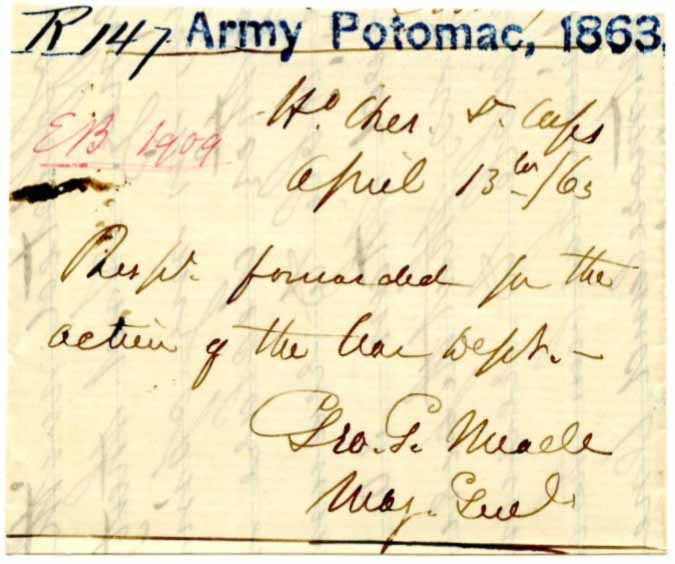 R 147 Army Potomac, 1863.
Hd. Qrs. 5. Corps
EB 1909
April 13th/63
Resply. forwarded for the
action of the War Dept. —
Geo. G. Meade
Maj. Genl.